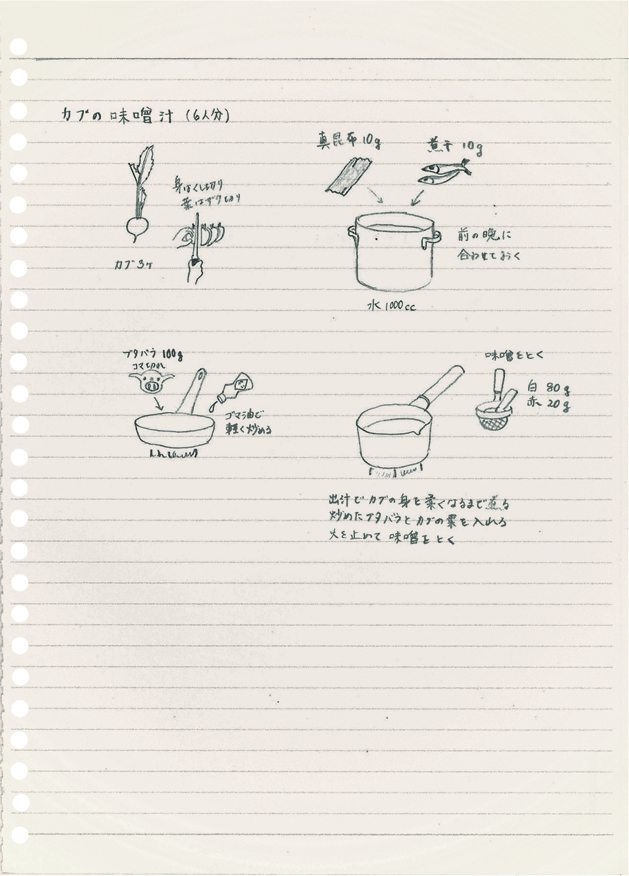 カブの味噌汁(6人分)
真昆布10g
煮干 10g
身はくし切り
葉はザク切り
カブ3ヶ
前の晩に
合わせておく
水 1000cc
ブタバラ 100g
コマ切れ
ゴマ油で
軽く炒める
味噌をとく
白 80g
赤 20g
出汁でカブの身を柔くなるまで煮る
炒めたブタバラとカブの葉を入れる
火を止めて 味噌をとく